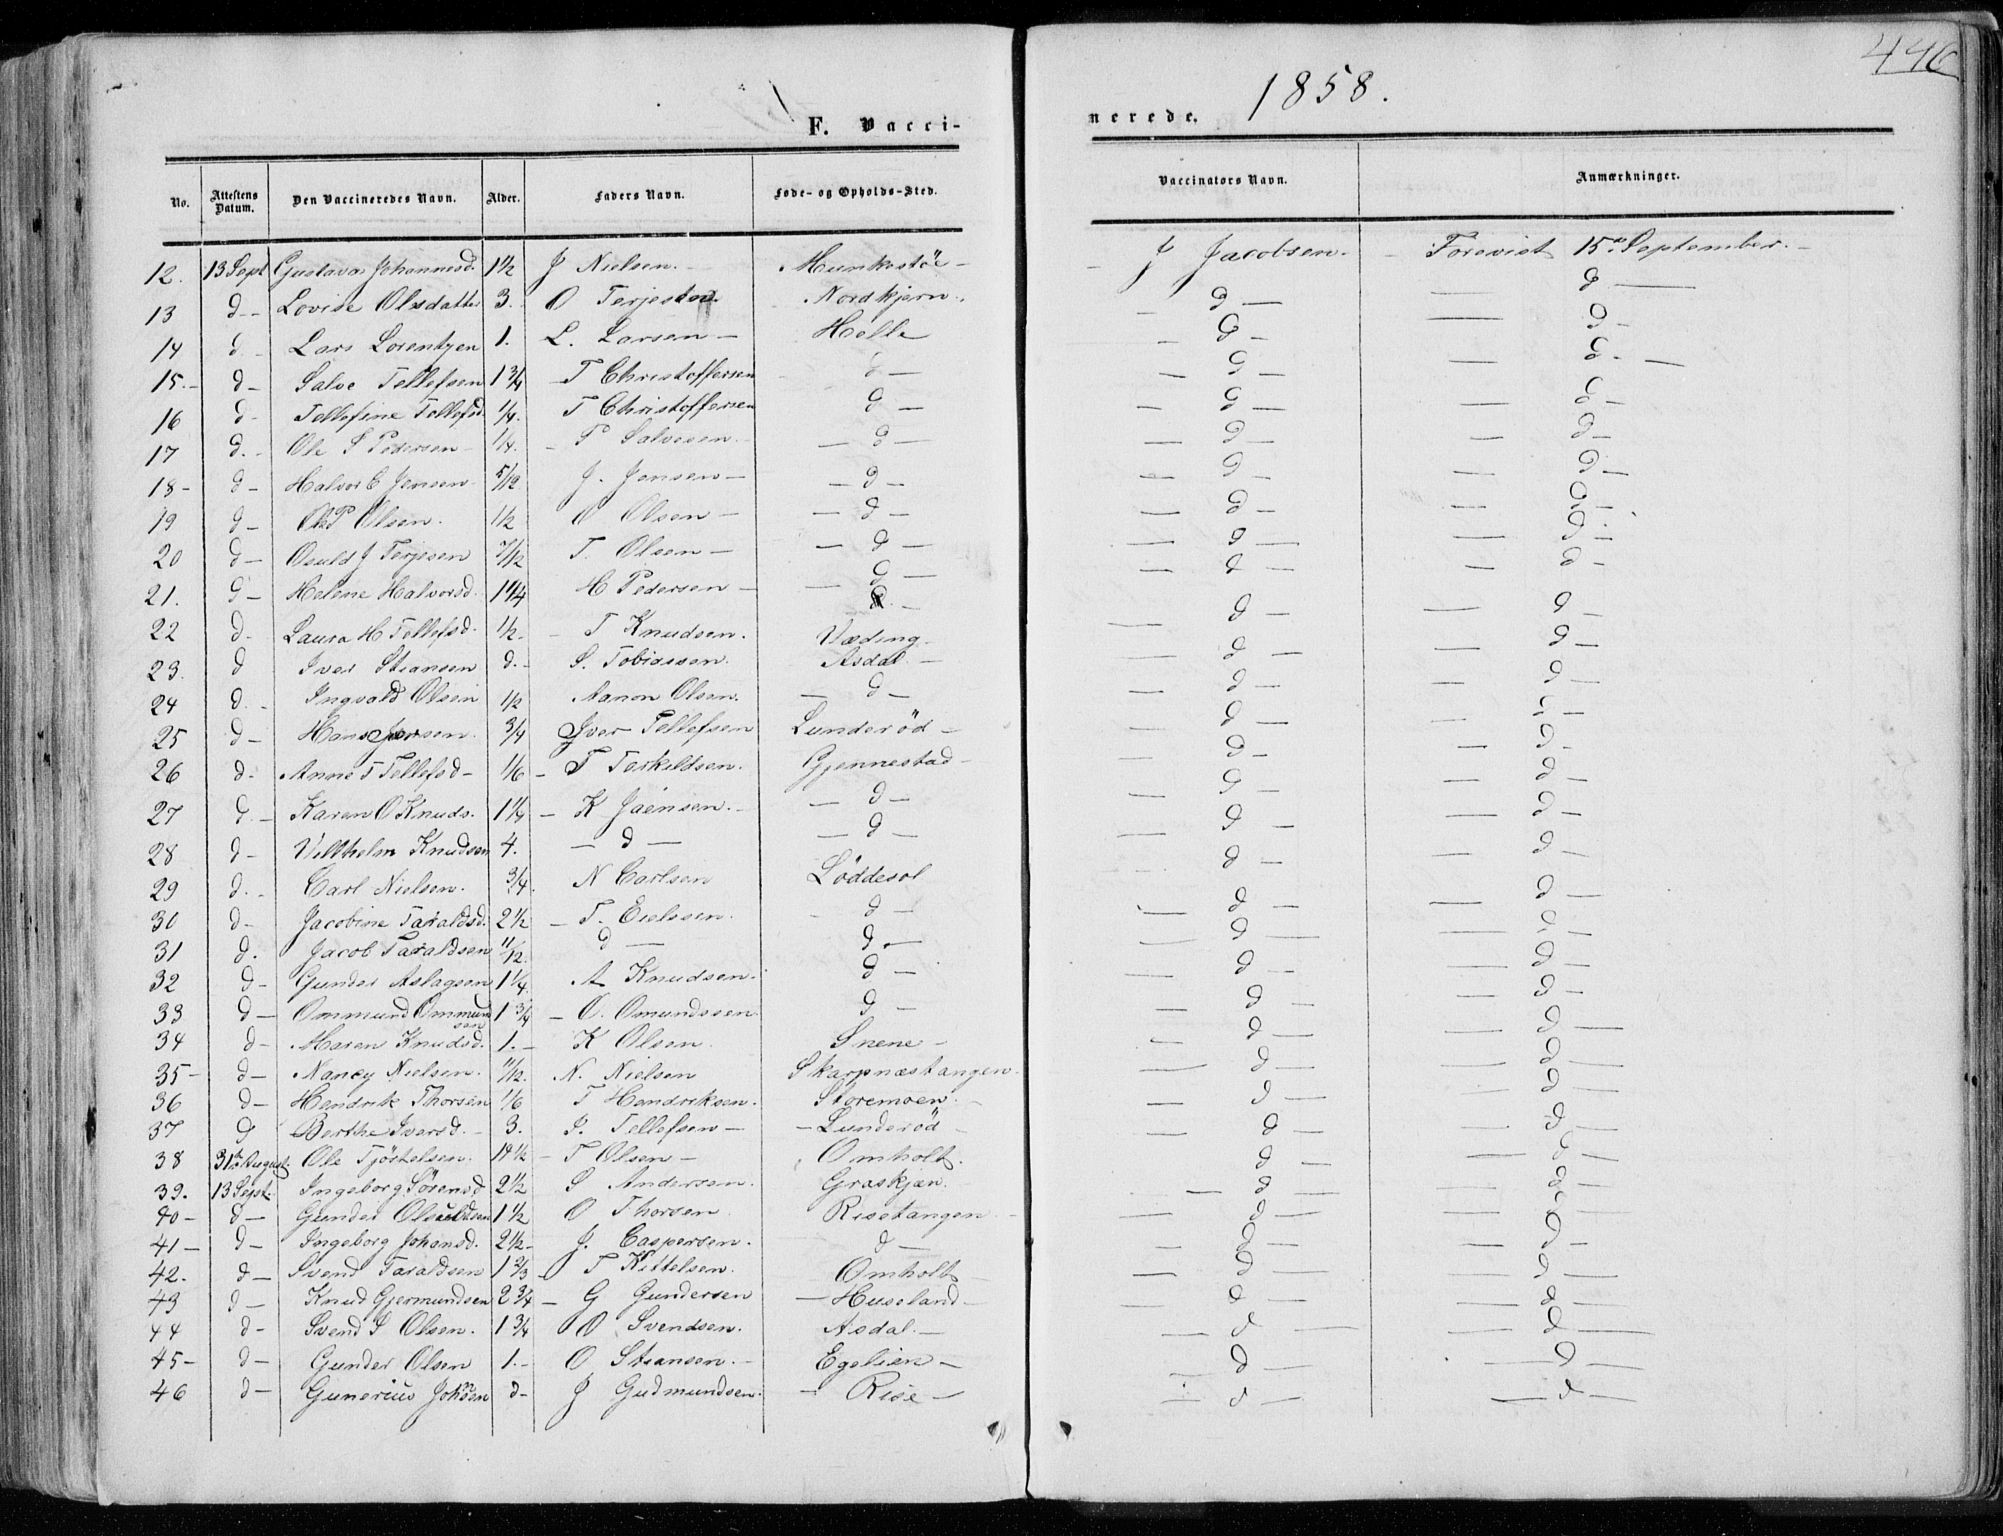 446
1858.
F. Vacci-
nerede.
No. Attestens Datum. Den Vaccineredes Navn. Alder. Faders Navn. Føde- og Opholds-Sted. Vaccinators Navn. Anmærkninger.
12. 13 Sept Gustava Johannesd. 1½ J Nielsen. - Munkestöe - J Jacobsen. - Forevist 15de September. -
13 d - Lovise Olsdatter 3. O Terjesen. Nordkjern. d - d -
14 d. - Lars Lorentzen 1. L. Larsen - Helle d - d -
15. - d - Salve Tellefsen 1¾ T Christoffersen d - d - d. -
16 d - Tellefine Tellefsd. ¼. T Christoffersen d - d - d -
17 d. - Ole S Pedersen ¼. P Salvesen. - d - d - d -
18 - d - Halvor C Jensen 5/12 J. Jensen - - d - d - d -
19 d - Ole P Olsen. ½ O Olsen - - d - d - d -
20 d - Osuld J Terjesen 7/12 T. Olsen - - d - d - d -
21. d - Helene Halvorsd. 1¼ H Pedersen - - d - d - d -
22 d. Laura H Tellefsd. ½. - T Knudsen. Væding. d - d -
23. d Iver Stiansen d. - S. Tobiassen. Asdal - d - d -
24 d. - Ingvald Olsen ½ Aanon Olsen. - d - d - d -
25 d - Hans Iversen. ¾ Iver Tellefsen Lunderöd - d - d -
26 d. Anne T Tellefsd - 1/6 - T Terkildsen. Gjennestad - d - d -
27 d. - Karen O Knuds. 1¼ - K Jaensen. - - d - d - d -
28 d - Vilhelm Knudsen 4. - d - - d - d - d -
29 d. - Carl Nielsen. ¾. N Carlsen Löddesöl d - d -
30 d - Jacobine Taraldsd. 2½ - T. Eielssen. d - d - d -
31 d. Jacob Taraldsen 11/12. d - d. - d - d -
32 d - Gunder Aslagsen 1¼. A Knudsen. d - d - d -
33 d - Ommund Ommundsen 1¾ - O. Omundssen. d - d - d -
34 d - Maren Knudsd. 1. - K Olsen Snene - d - d -
35 - d - Nancy Nielsen. 11/12. N. Nielsen Skarpnæstangen. d - d -
36 d - Hendrik Thorsen 1/6 T Hendriksen. Storemoen. - d - d -
37 d Berthe Iversd. - 3. I. Tellefsen - - Lunderöd - d - d -
38 31te August. Ole Tjöstelsen. 14½ - T Olsen - Omholt. d d -
39. 13 Sept. Ingeborg Sörensd 2½ S Andersen. Graskjæn. - d - d -
40 - d - Gunder Osuldsen 1½ O Thorsen Risetangen. - d - d -
41 - d - Ingeborg Johansd. 2½ - J. Caspersen. d - d - d -
42. d - Svend Taraldsen 1⅔ - T Kittelsen. Omholt - d - d -
43 d - Knud Gjermundsen 2¾ - G Gundersen - Huseland - d - d -
44 d - Svend S Olsen. 1¾ O Svendsen. Asdal. - d - d -
45 - d - Gunder Olsen 1. - O Stiansen. - Egelien - d - d -
46 d - Gunerius Johnsen d - J Gudmundsen. - Rise - d - d -